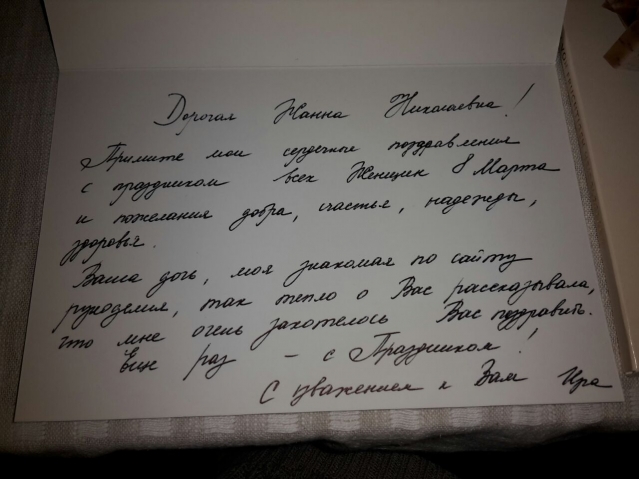 Дорогая Жанна Николаевна!
Примите мои сердечные поздравления
с праздником всех Женщин 8 Марта
и пожелания добра, счастья, надежды,
здоровья.
Ваша дочь, моя знакомая по сайту
рукоделия, так тепло о Вас рассказывала,
что мне очень захотелось Вас поздравить.
Еще раз - с Праздником!
С уважением к Вам Ира